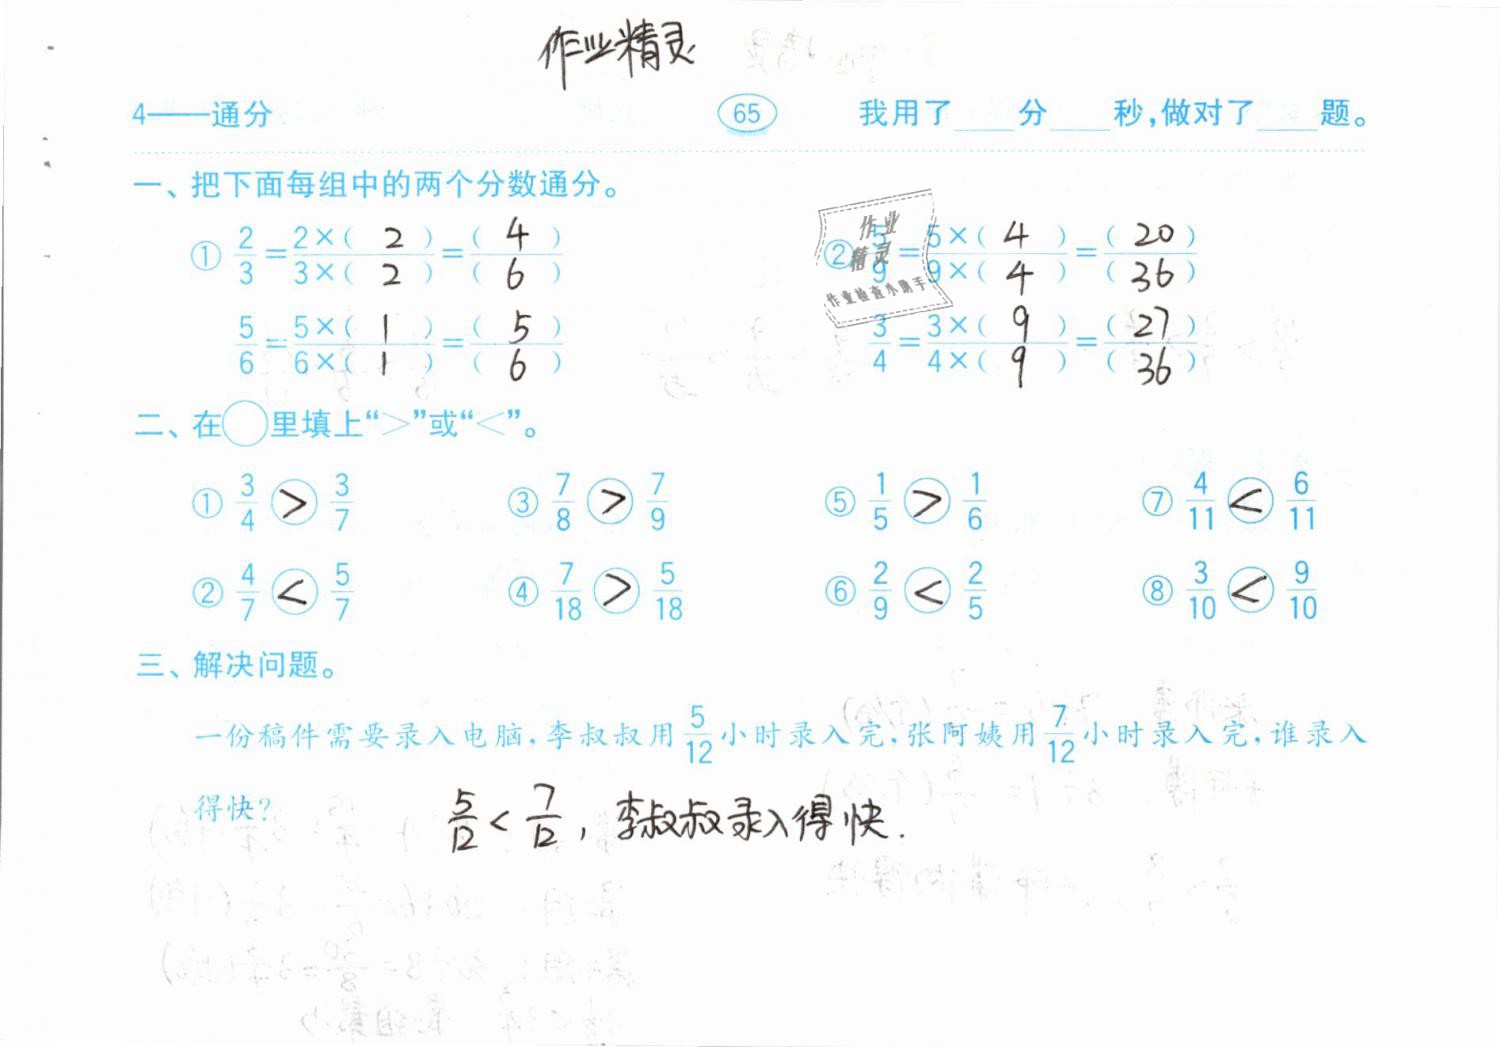 作业精灵
4——通分 65 我用了____分____秒,做对了____题。
一、把下面每组中的两个分数通分。
① 2/3 = 2×( 2 )/3×( 2 ) = ( 4 )/( 6 ) ② 5/9 = 5×( 4 )/9×( 4 ) = ( 20 )/( 36 )
作业
精灵
作业检查小助手
5/6 = 5×( 1 )/6×( 1 ) = ( 5 )/( 6 ) 3/4 = 3×( 9 )/4×( 9 ) = ( 27 )/( 36 )
二、在○里填上“>”或“<”。
① 3/4 > 3/7 ③ 7/8 > 7/9 ⑤ 1/5 > 1/6 ⑦ 4/11 < 6/11
② 4/7 < 5/7 ④ 7/18 > 5/18 ⑥ 2/9 < 2/5 ⑧ 3/10 < 9/10
三、解决问题。
一份稿件需要录入电脑,李叔叔用5/12小时录入完,张阿姨用7/12小时录入完,谁录入
得快? 5/12 < 7/12, 李叔叔录入得快.